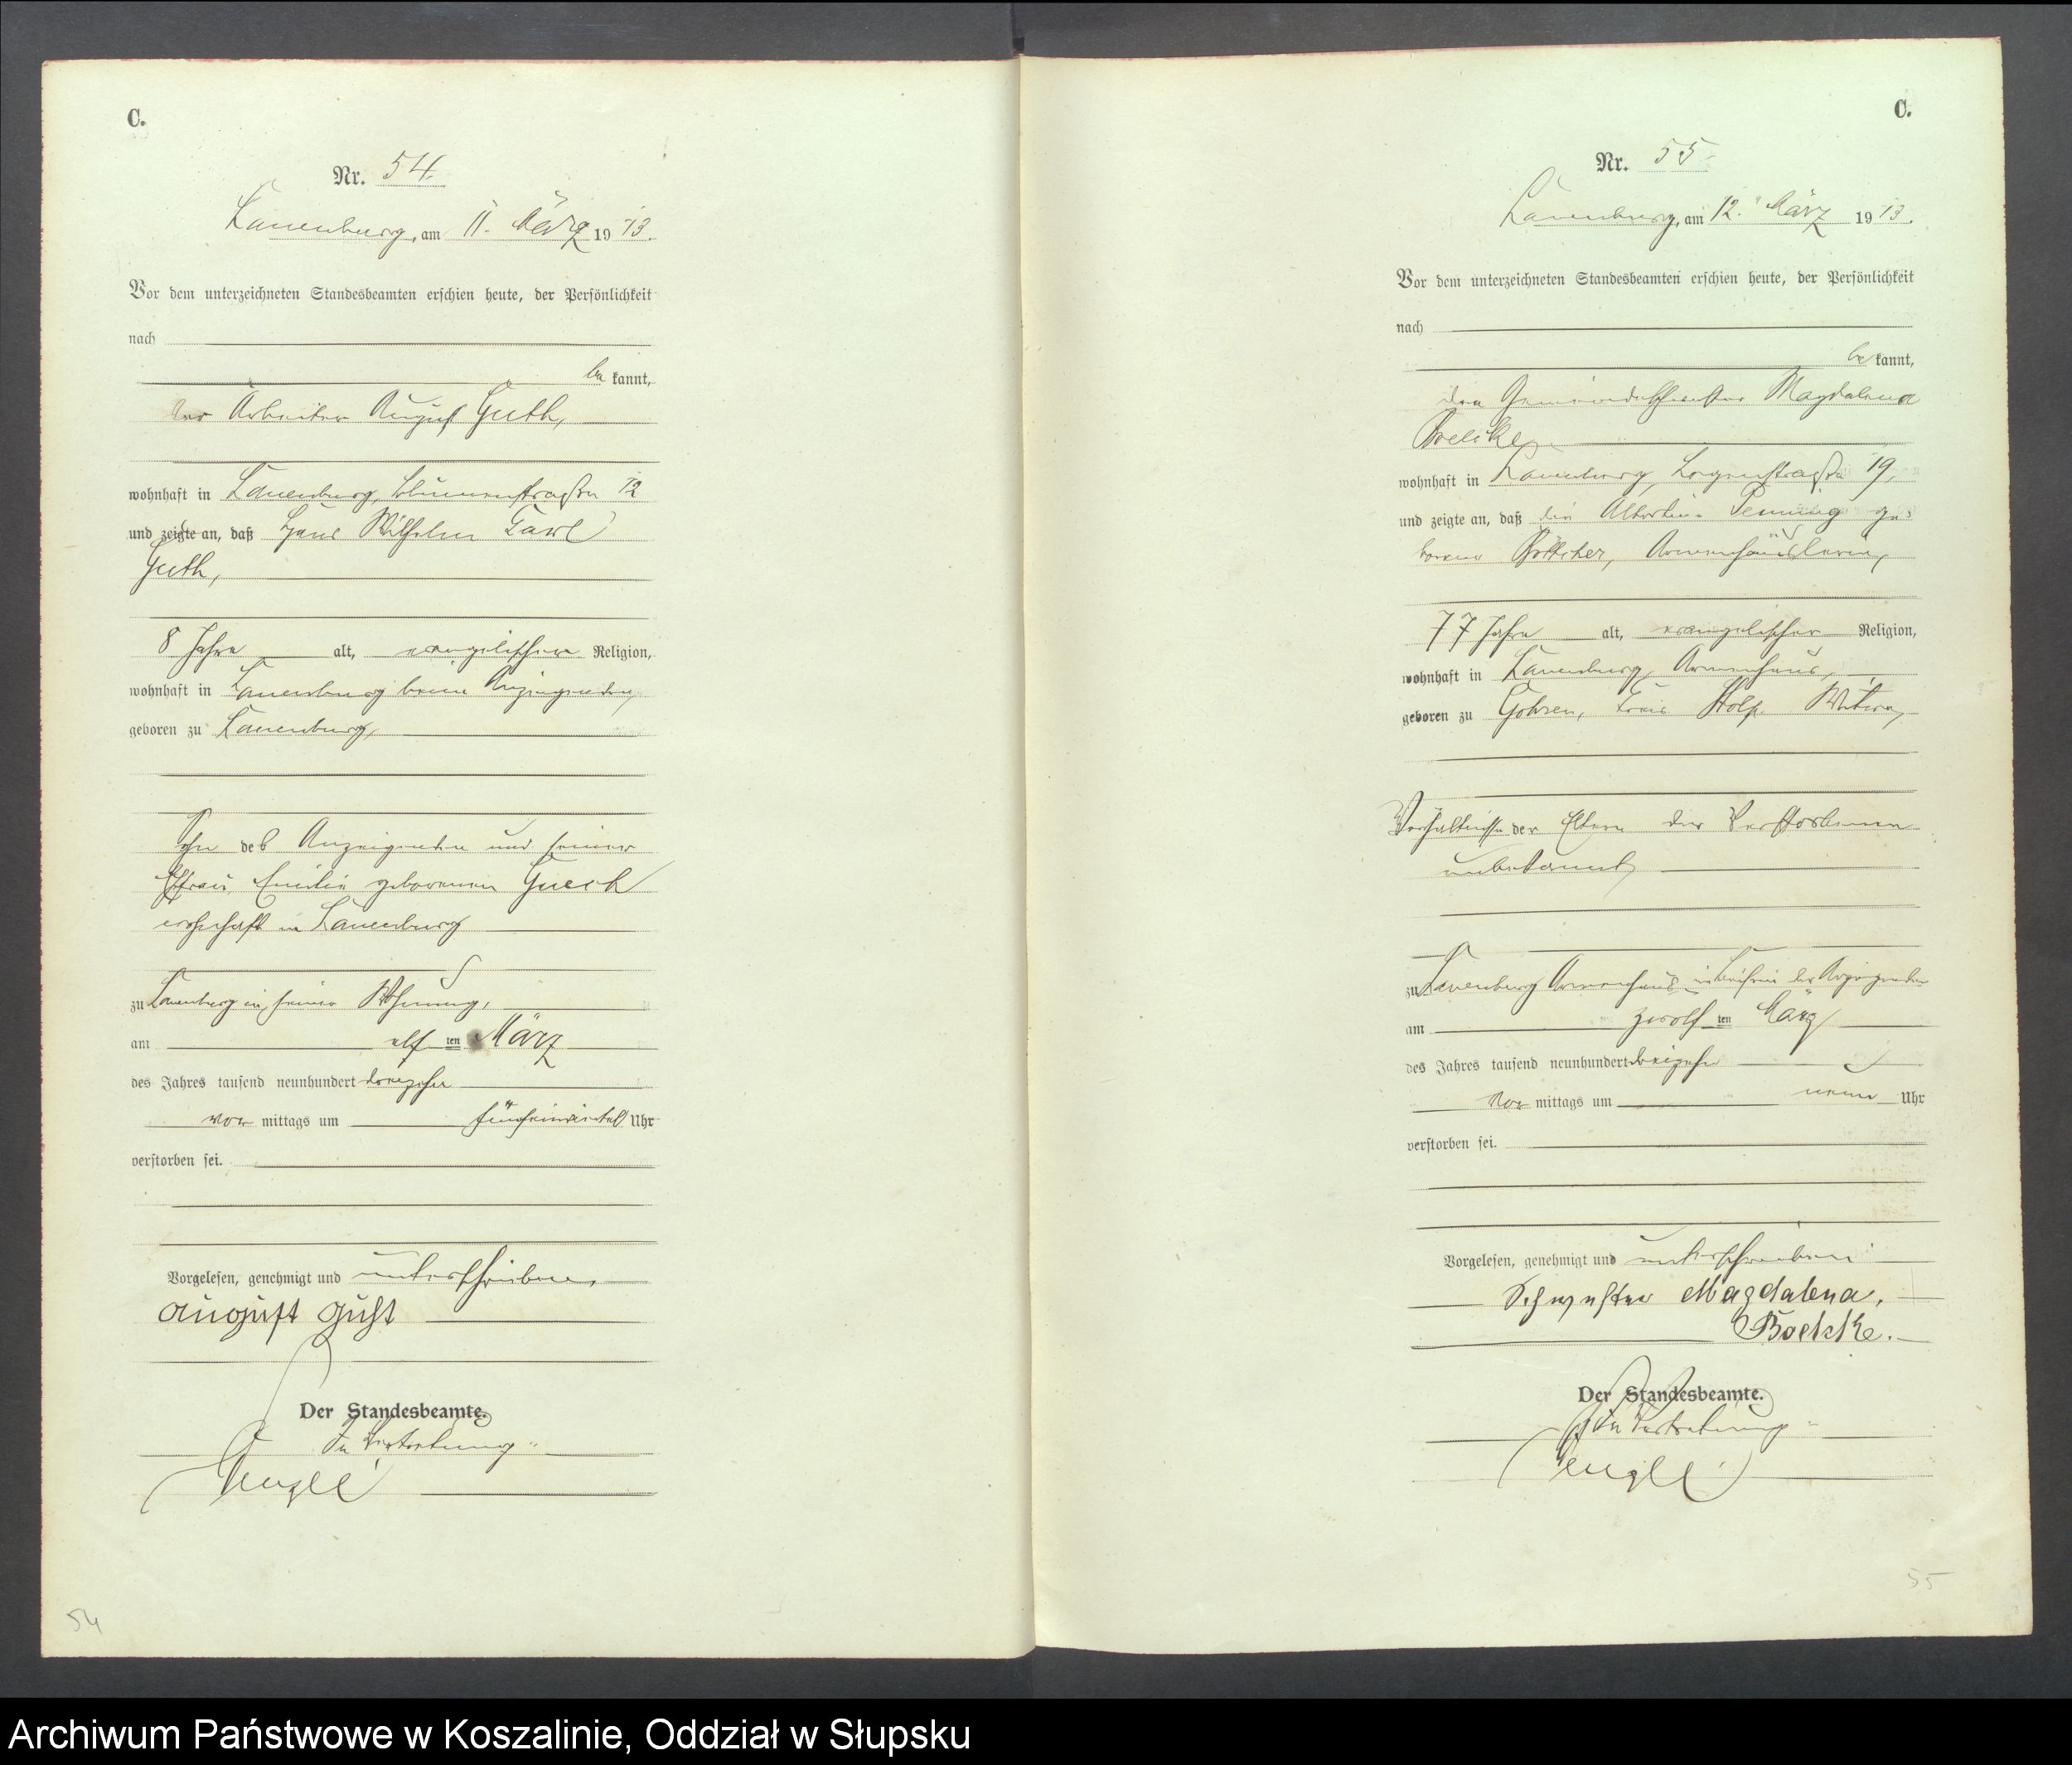 C.
Nr. 54.
Lauenburg, am 11. März 1913.
Vor dem unterzeichneten Standesbeamten erschien heute, der Persönlichkeit
nach
be kannt,
der Arbeiter August Guth,
wohnhaft in Lauenburg, Blumenstraße 12
und zeigte an, daß Hans Wilhelm Carl
Guth,
8 Jahre alt, evangelischer Religion,
wohnhaft in Lauenburg beim Anzeigenden,
geboren zu Lauenburg,
Sohn des Anzeigenden und seiner
Ehefrau Emilie geborenen
wohnhaft in Lauenburg
zu Lauenburg in seiner Wohnung,
am elf ten März
des Jahres tausend neunhundert dreizehn
vor mittags um Uhr
verstorben sei.
Vorgelesen, genehmigt und unterschrieben.
August Guht
Der Standesbeamte.
In Vertretung
54
C.
Nr. 55.
Lauenburg, am 12. März 1913.
Vor dem unterzeichneten Standesbeamten erschien heute, der Persönlichkeit
nach
be kannt,
die Gemeindeschwester Magdalena
wohnhaft in Lauenburg, 19,
und zeigte an, daß die Albertine ge
borene Böttcher, Armenhäuslerin,
77 Jahre alt, evangelischer Religion,
wohnhaft in Lauenburg, Armenhaus,
geboren zu Gohren, Kreis Stolp. Witwe,
Verhältnisse der Eltern der Verstorbenen
unbekannt,
zu Lauenburg Armenhaus in Beisein der Anzeigenden
am zwölf ten März
des Jahres tausend neunhundert dreizehn
Vor mittags um neun Uhr
verstorben sei.
Vorgelesen, genehmigt und unterschrieben
Schwester Magdalena.
Boelske.
Der Standesbeamte.
In Vertretung
55
Archiwum Państwowe w Koszalinie, Oddział w Słupsku